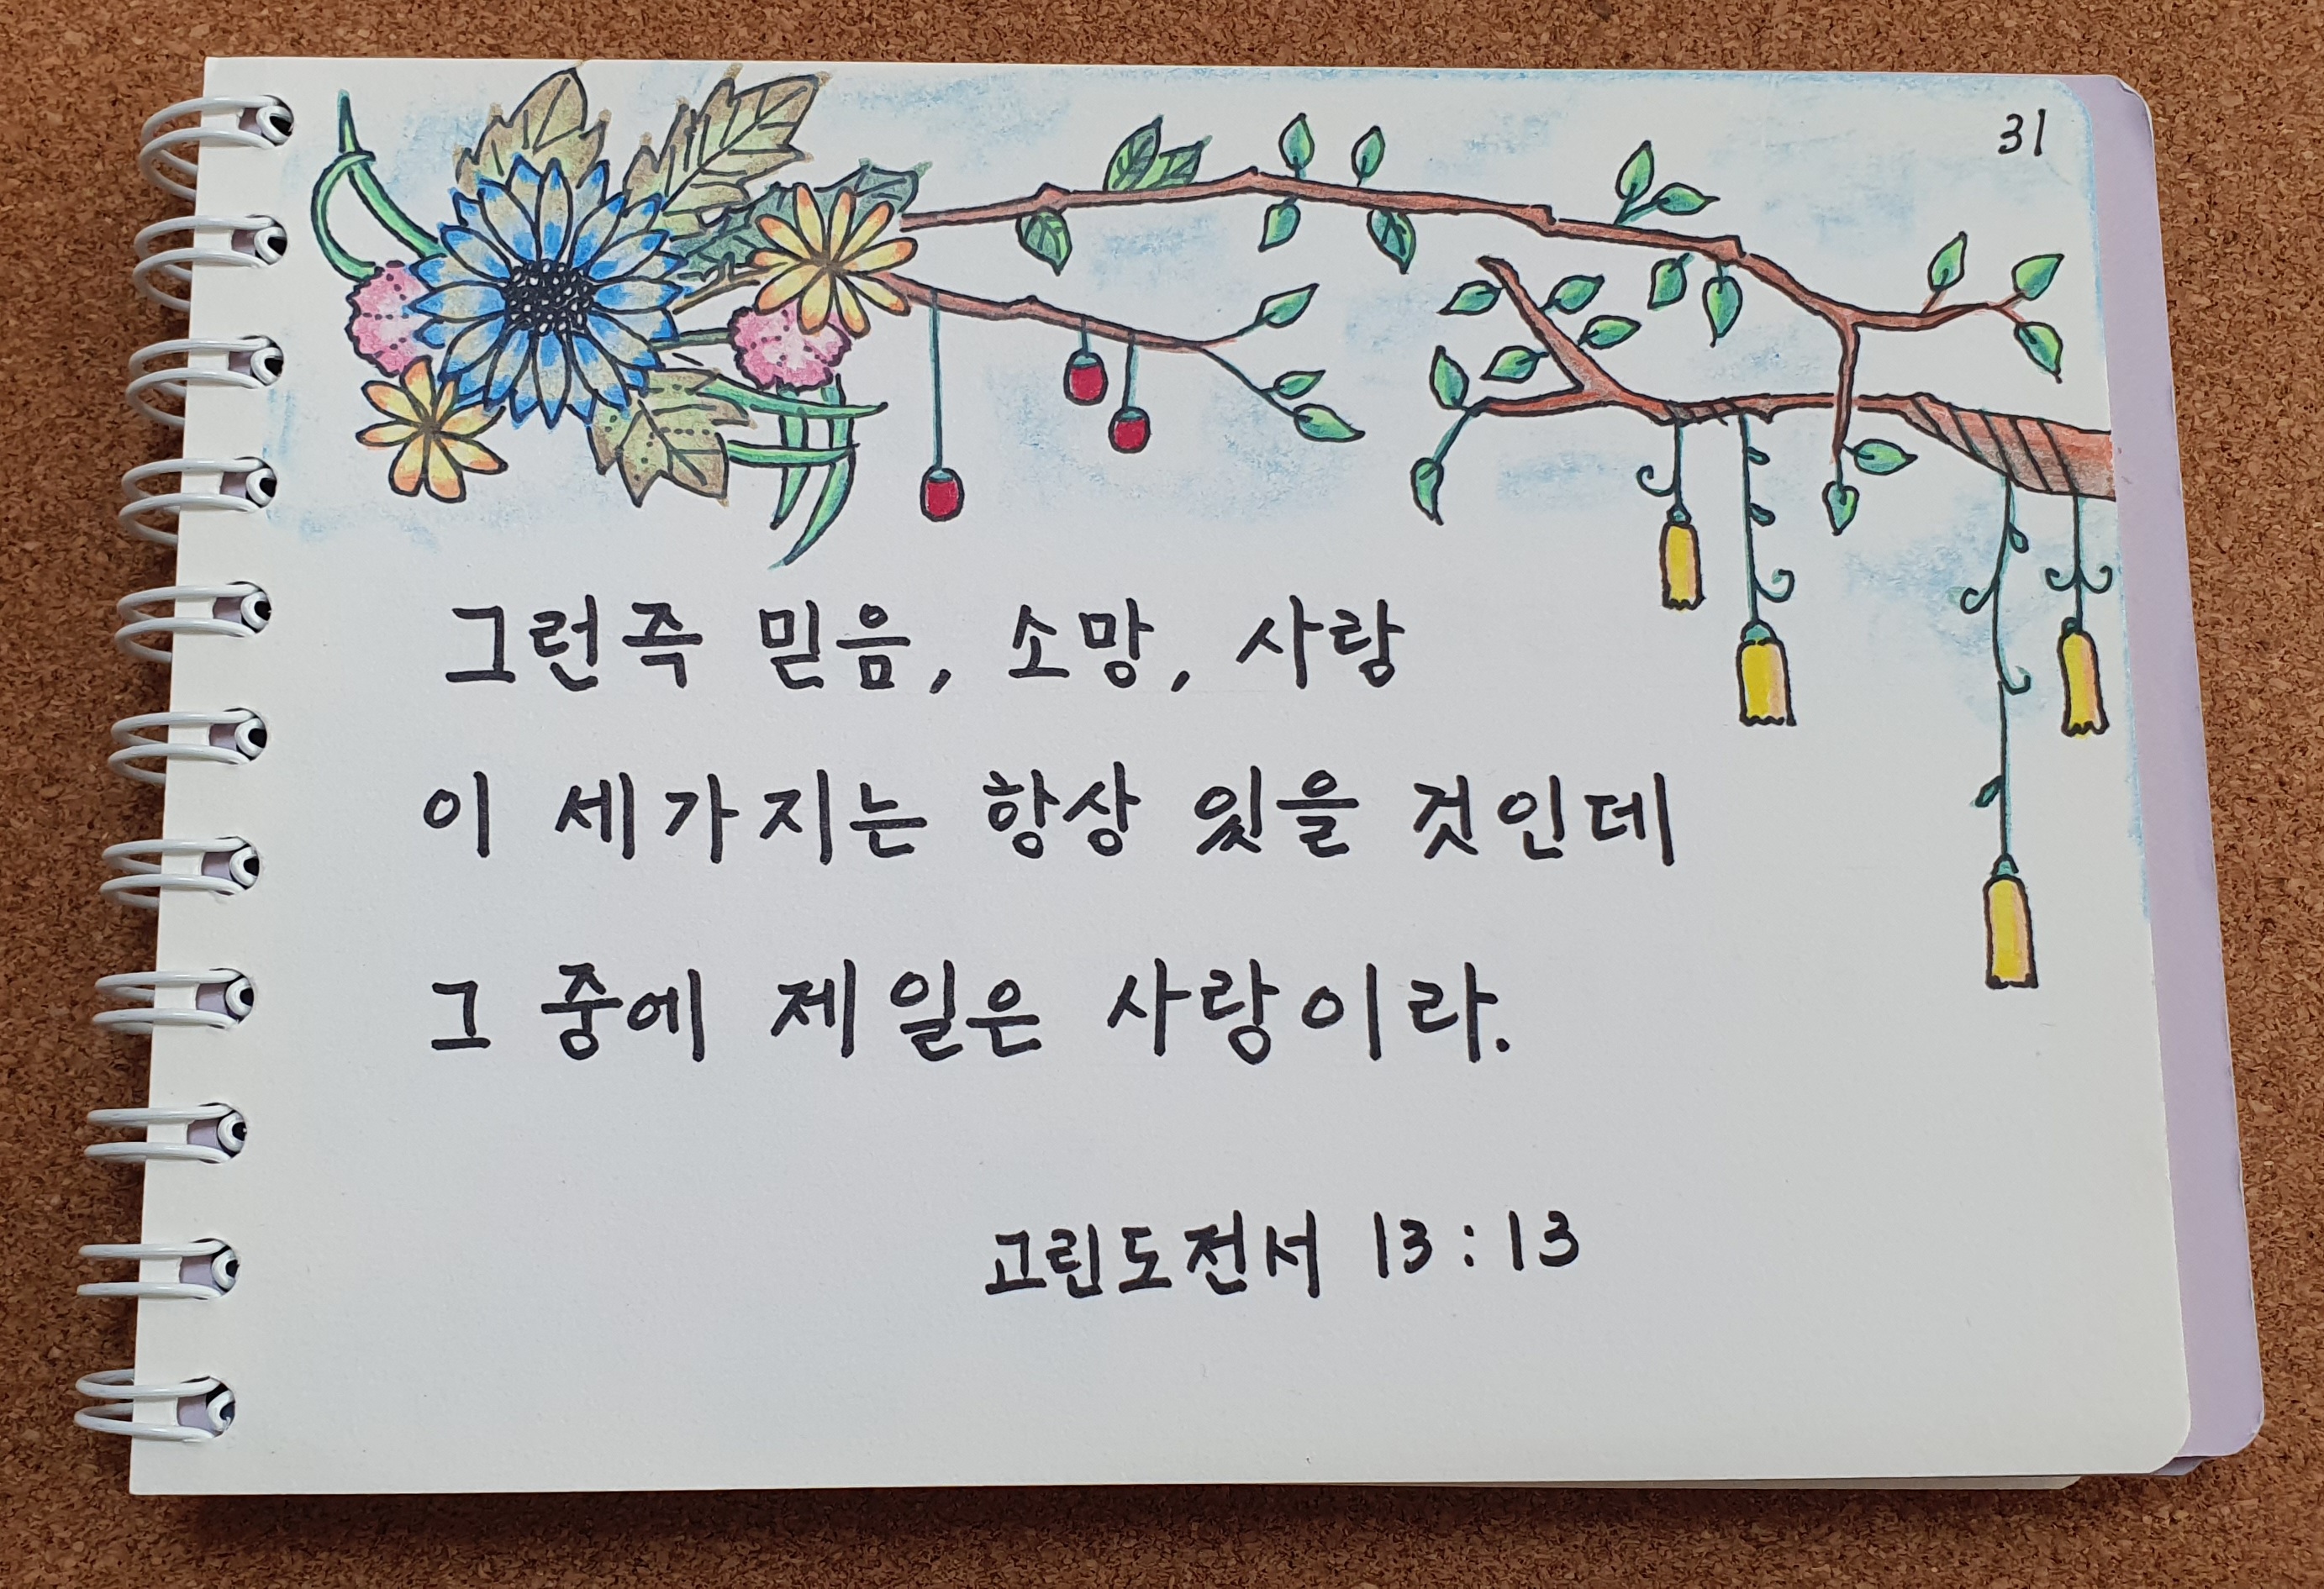 31
그런즉 믿음, 소망, 사랑
이 세가지는 항상 있을 것인데
그 중에 제일은 사랑이라.
고린도전서 13:13